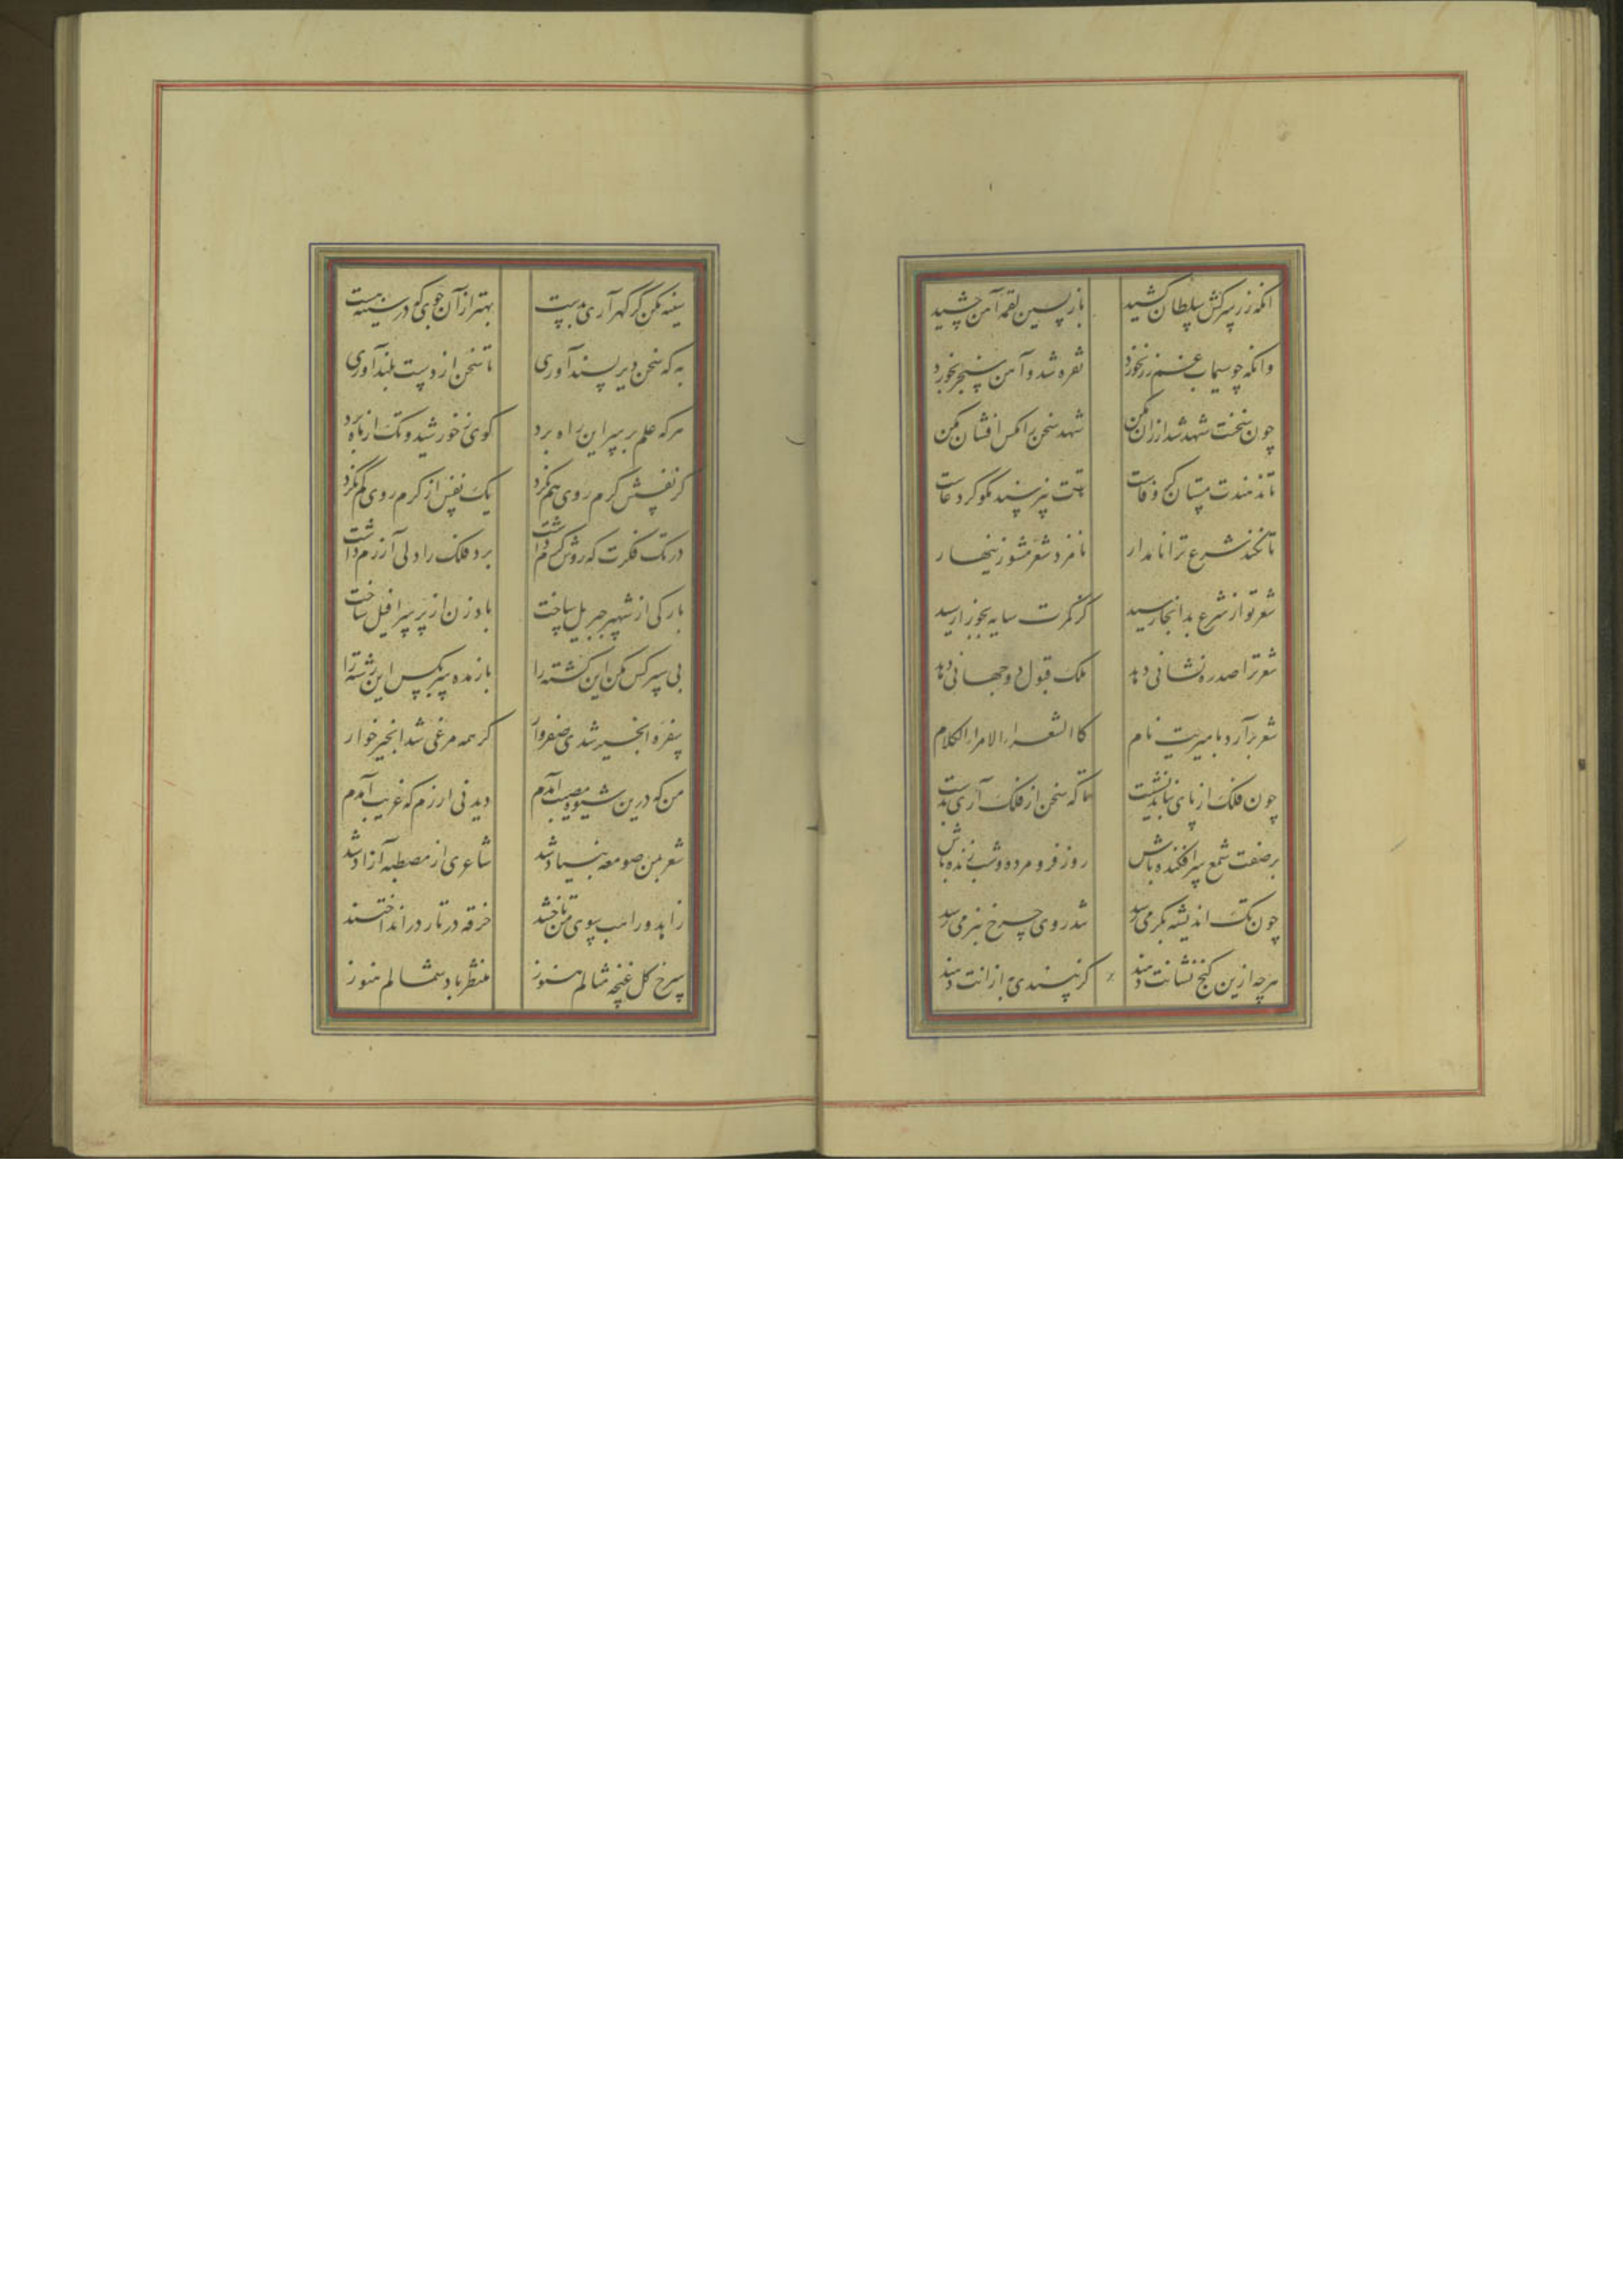 انکه زر سرکش سلطان کشید باز پسین لقمه آهن چشید
وانکه چو سیماب غم زر نخورد نقره شد و آهن سنجر نخورد
چون سخنت شهد شد ارزان مکن شهد سخن را مکس افشان مکن
تا ندهندت مستان کر وفاست تا ننیوشند مکو کر دعاست
تا نکند شرع ترا نامدار نامزد شعر مشو زینهار
شعر تو از شرع بدانجا رسید کز کمرت سایه بجوزا رسید
شعر ترا صدره نشانی دهد ملک قبول دو جهانی دهد
شعر برآرد بامیریت نام کالشعراء الامراء الکلام
چون فلک از پای نباید نشست تا که سخن از فلک آری بدست
بر صفت شمع سرافکنده باش روز فرو مرده و شب زنده باش
چون تک اندیشه بکرمی رسد شد روی چرخ بنرمی رسد
هرچه ازین کنج نشانت دهند کر نپسندی به ازانت دهند
سینه مکن کر کهر آری بدست بهتر از آن جوی که در سینه هست
به که سخن دیر پسند آوری تا سخن از دست بلند آوری
هرکه علم بر سر این راه برد کوی ز خورشید و تک از ماه برد
کر نفسش کرم روی هم نکرد یک نفس از کرم روی کم نکرد
در تک فکرت که روش کرم داشت برد فلک را ولی آزرم داشت
بارکی از شهپر جبریل ساخت باد زن از پر سرافیل ساخت
بی سپر کس مکن این کشته را باز مده سر بکس این رشته را
سفره انجیر شدی صفروار کر همه مرغی شد انجیر خوار
من که درین شیوه مصیب آمدم دیدنی ارزم که غریب آمدم
شعر بمن صومعه بنیاد شد شاعری از مصطبه آزاد شد
زاهد و راهب سوی من تاختند خرقه در تار در انداختند
سرخ کل غنچه مثالم هنوز منتظر باد شمالم هنوز